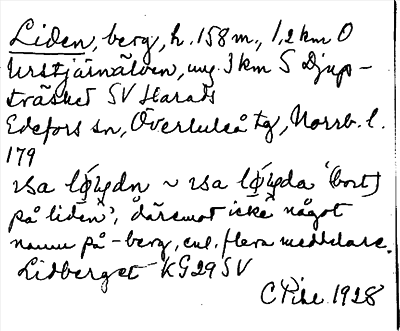 Liden, berg, h. 158 m., 1,2 km O
Urstjärnälven, ung. 3 km S Djup-
träsket SV Harads
Edefors sn, Överluleå tg, Norrb. l.
179
på liden', däremot icke något
namn på -berg, enl. flera meddelare.
Lidberget KG29SV
C Pihl 1928